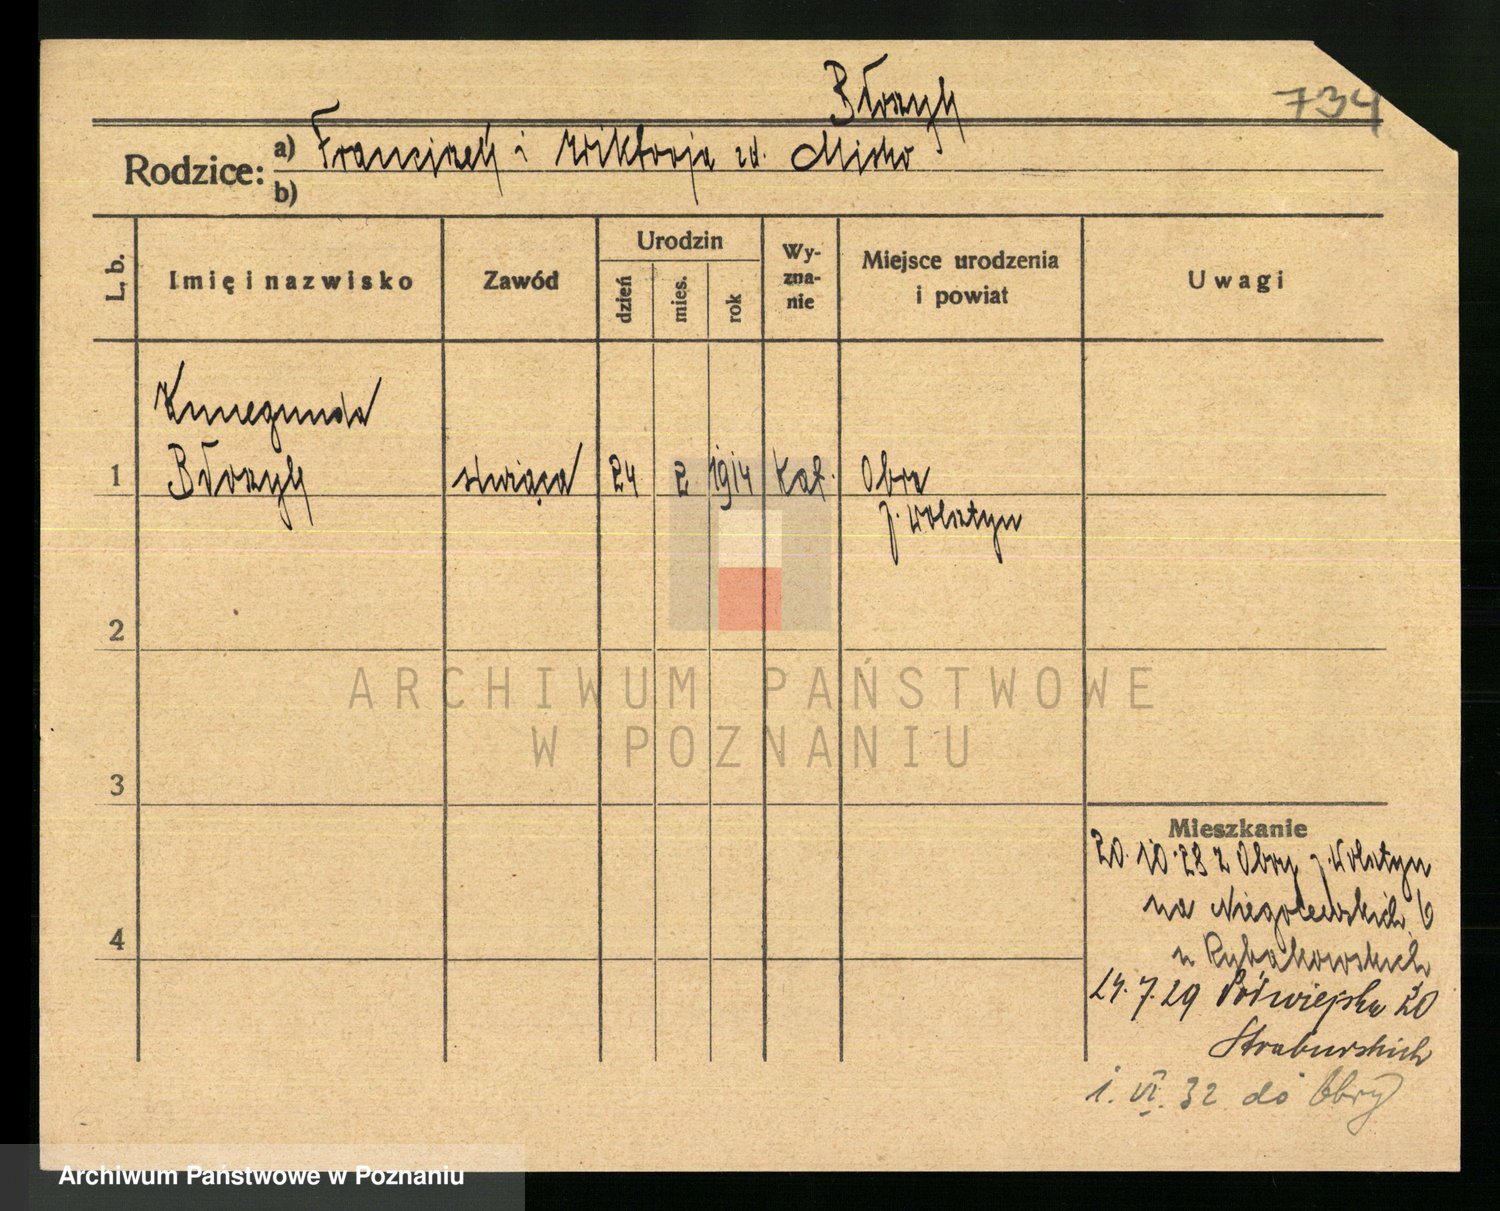 Błoszyk
734
Rodzice: a) Franciszek i Wiktorja zd. Misko
b)
L. b.
Imię i nazwisko
Zawód
Urodzin
dzień
mies.
rok
Wy-
zna-
nie
Miejsce urodzenia
i powiat
Uwagi
Kunegunda
1 Błoszyk służąca 24 2 1914 kat. Obra
p. Wolsztyn
2
ARCHIWUM PAŃSTWOWE
W POZNANIU
3
Mieszkanie
20.10.28 z Obry p. Wolsztyn
na Niegolewskich 6
u Rybakowskich
24.7.29 Półwiejska 20
Straburskich
4
1. VI. 32 do Obry
Archiwum Państwowe w Poznaniu